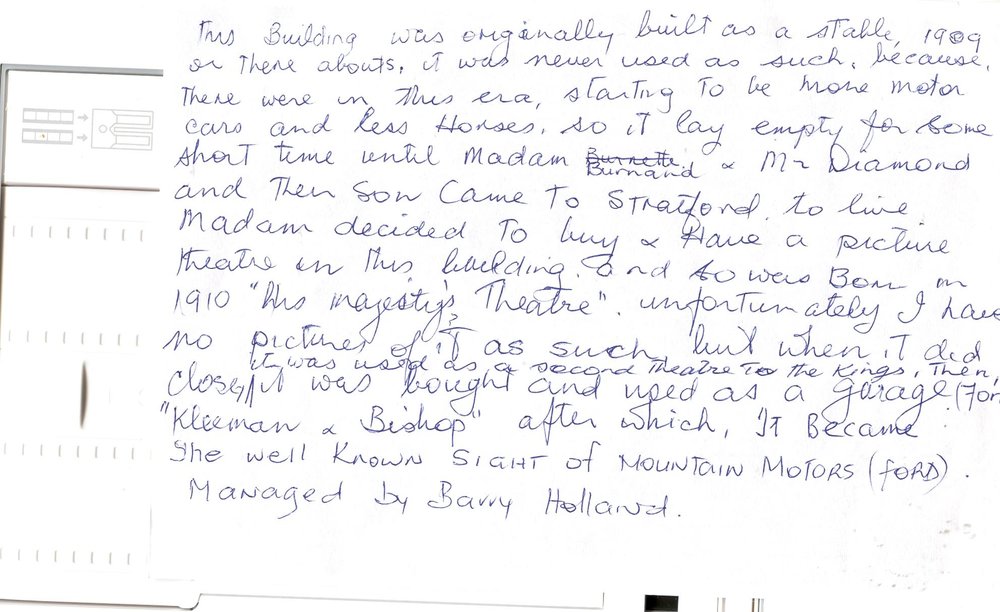 This Building was originally built as a stable, 1909
or there abouts, it was never used as such, because,
There were in this era, starting to be more motor
cars and less Horses, so it lay empty for some
short time until Madam Burnette & Mr Diamond
Burnand
and Their Son Came To Stratford, to live.
Madam decided To buy & Have a picture
theatre in this building. and so was Born in
1910 "His majesty's Theatre". unfortunately I have
no pictures of it as such, but when it did
it was used as a second Theatre To the Kings, Then,
close, it was bought and used as a Garage (For
"Kleeman & Bishop" after which, It Became
The well Known SIGHT of MOUNTAIN MOTORS (FORD).
Managed by Barry Holland.